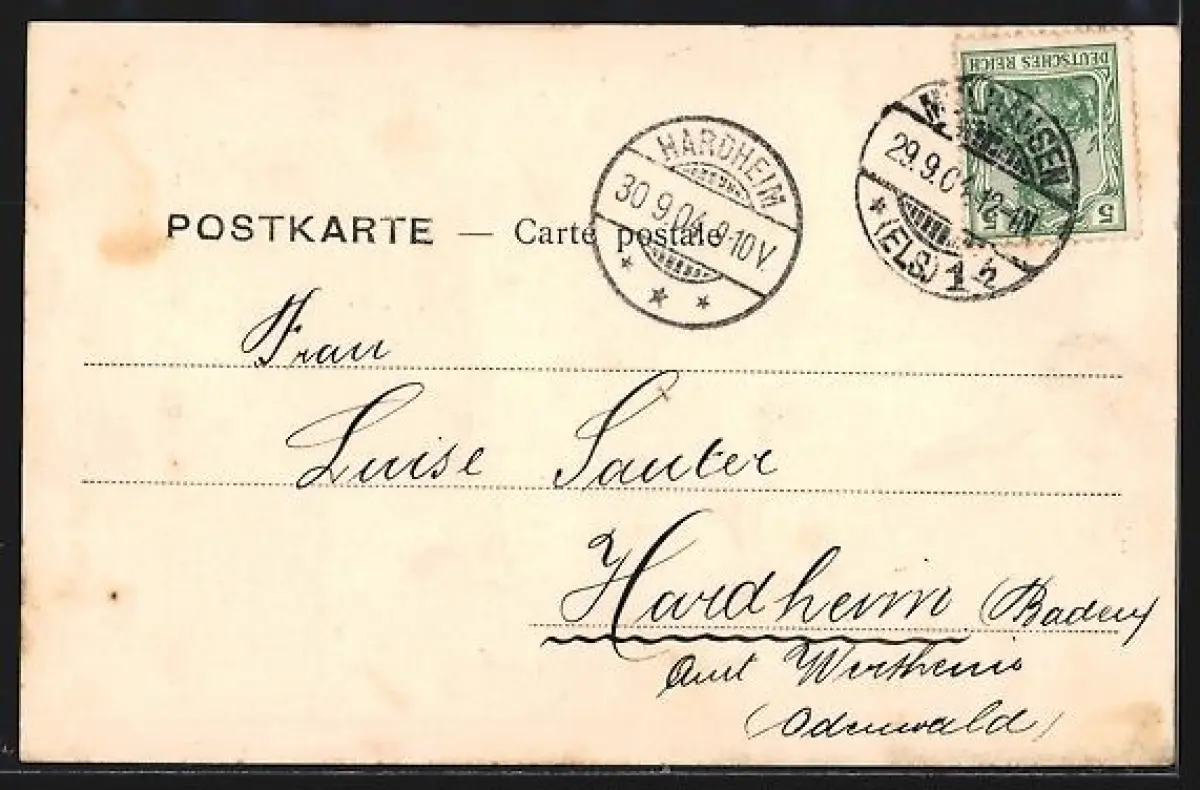 DEUTSCHES REICH
5 5
MÜLHAUSEN
29.9.04. 12-1N.
* (ELS) 1 h
HARDHEIM
30 9.04 9-10V.
POSTKARTE — Carte postale
Frau
Luise Sauter
Hardheim (Baden)
Amt Wertheim
(Odenwald)